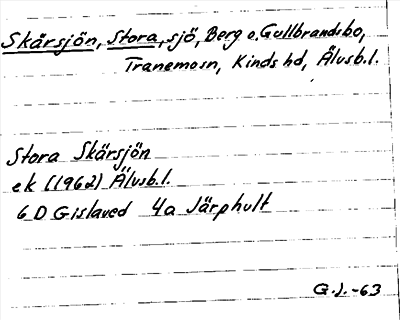 Skärsjön, Stora, sjö, Berg o. Gullbrandsbo,
Tranemo sn, Kinds hd, Älvsb.l.
Stora Skärsjön
ek (1962) Älvsb.l.
6 D Gislaved 4a Järphult
G.J.-63